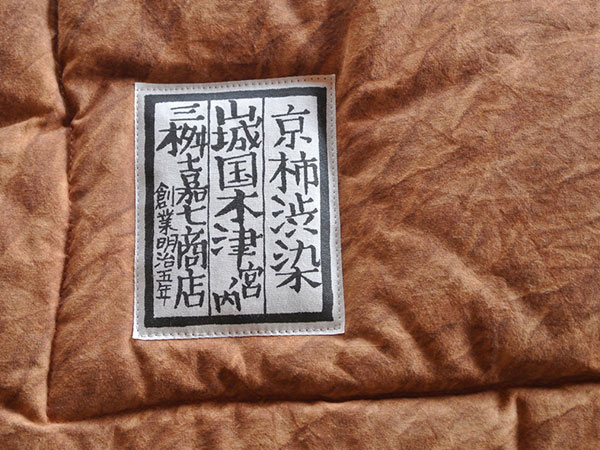 京柿渋染
山城国木津宮ノ内
三桝嘉七商店
創業明治五年